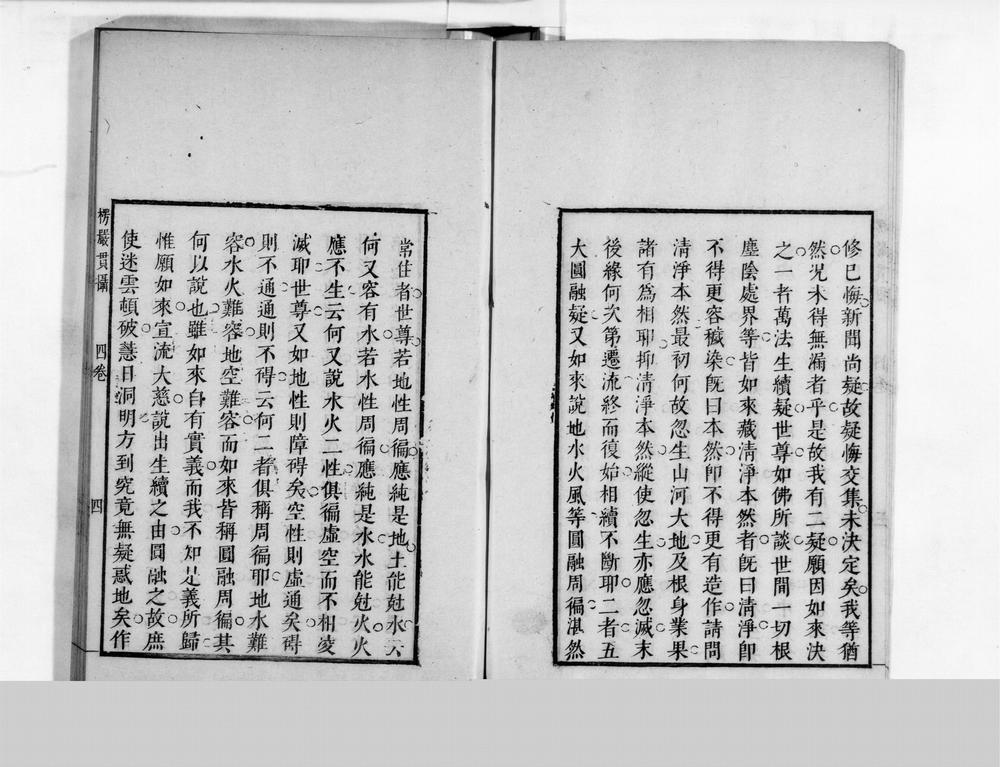 修已悔新聞尚疑故疑悔交集未決定矣我等猶
然况未得無漏者乎是故我有二疑願因如來決
之一者萬法生續疑世尊如佛所談世間一切根
塵陰處界等皆如來藏清淨本然者旣曰清淨卽
不得更容穢染旣曰本然卽不得更有造作請問
清淨本然最初何故忽生山河大地及根身業果
諸有爲相耶抑清淨本然縱使忽生亦應忽滅末
後緣何次第遷流終而復始相續不斷耶二者五
大圓融疑又如來說地水火風等圓融周徧湛然
常住者世尊若地性周徧應純是地土能尅水云
何又容有水若水性周徧應純是水水能尅火火
應不生云何又說水火二性俱徧虛空而不相凌
滅耶世尊又如地性則障碍矣空性則虛通矣碍
則不通通則不碍云何二者俱稱周徧耶地水難
容水火難容地空難容而如來皆稱圓融周徧其
何以說也雖如來自有實義而我不知是義所歸
惟願如來宣流大慈說出生續之由圓融之故庶
使迷雲頓破慧日洞明方到究竟無疑惑地矣作
楞嚴貫攝 四卷 四